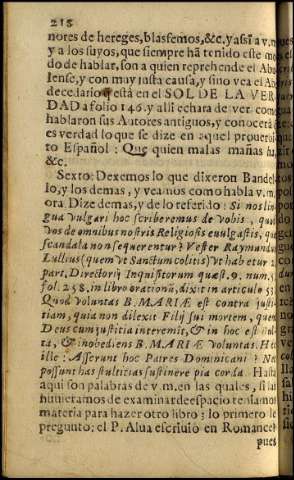 218
nores de hereges, blasfemos, &c. y assi a v.m.
y a los suyos, que siempre hã tenido esse mo
do de hablar, son a quien reprehende el Abu
lense, y con muy justa causa, y sino vea el Ab
decelario está en el SOL DE LA VER
DAD a folio 146. y alli echara de ver como
hablaron sus Autores antiguos, y conocerá
es verdad lo que se dize en aquel prouerbi
to Español: Que quien malas mañas ha,
&c.
Sexto: Dexemos lo que dixeron Bandel
lo, y los demas, y veamos como habla v.m.
ora. Dize demas, y de lo referido: Si nos lin
gua vulgari hoc scriberemus de vobis, quod
vos de omnibus nostris Religiosis euulgastis, quæ
scandala non sequerentur? Vester Raymundus
Lullius (quem vt Sanctum colitis) vt habetur 2.
part. Directorij Inquisitorum quæst. 9. num. 5.
fol. 258. in libro orationũ, dixit in articulo 53.
Quod voluntas B. MARIÆ est contra justi-
tiam, quia non dilexit Filij sui mortem, quem
Deus cum justitia interemit, & in hoc est stul-
ta, & inobediens B. MARIÆ voluntas. Hæc
ille: Asserunt hoc Patres Dominicani? Non
possunt has stultitias sustinere pia corda. Hasta
aqui son palabras de v.m. en las quales, si las
huuieramos de examinar de espacio teniamos
materia para hazer otro libro; lo primero le
pregunto: el P. Alua escriuio en Romance?
pues